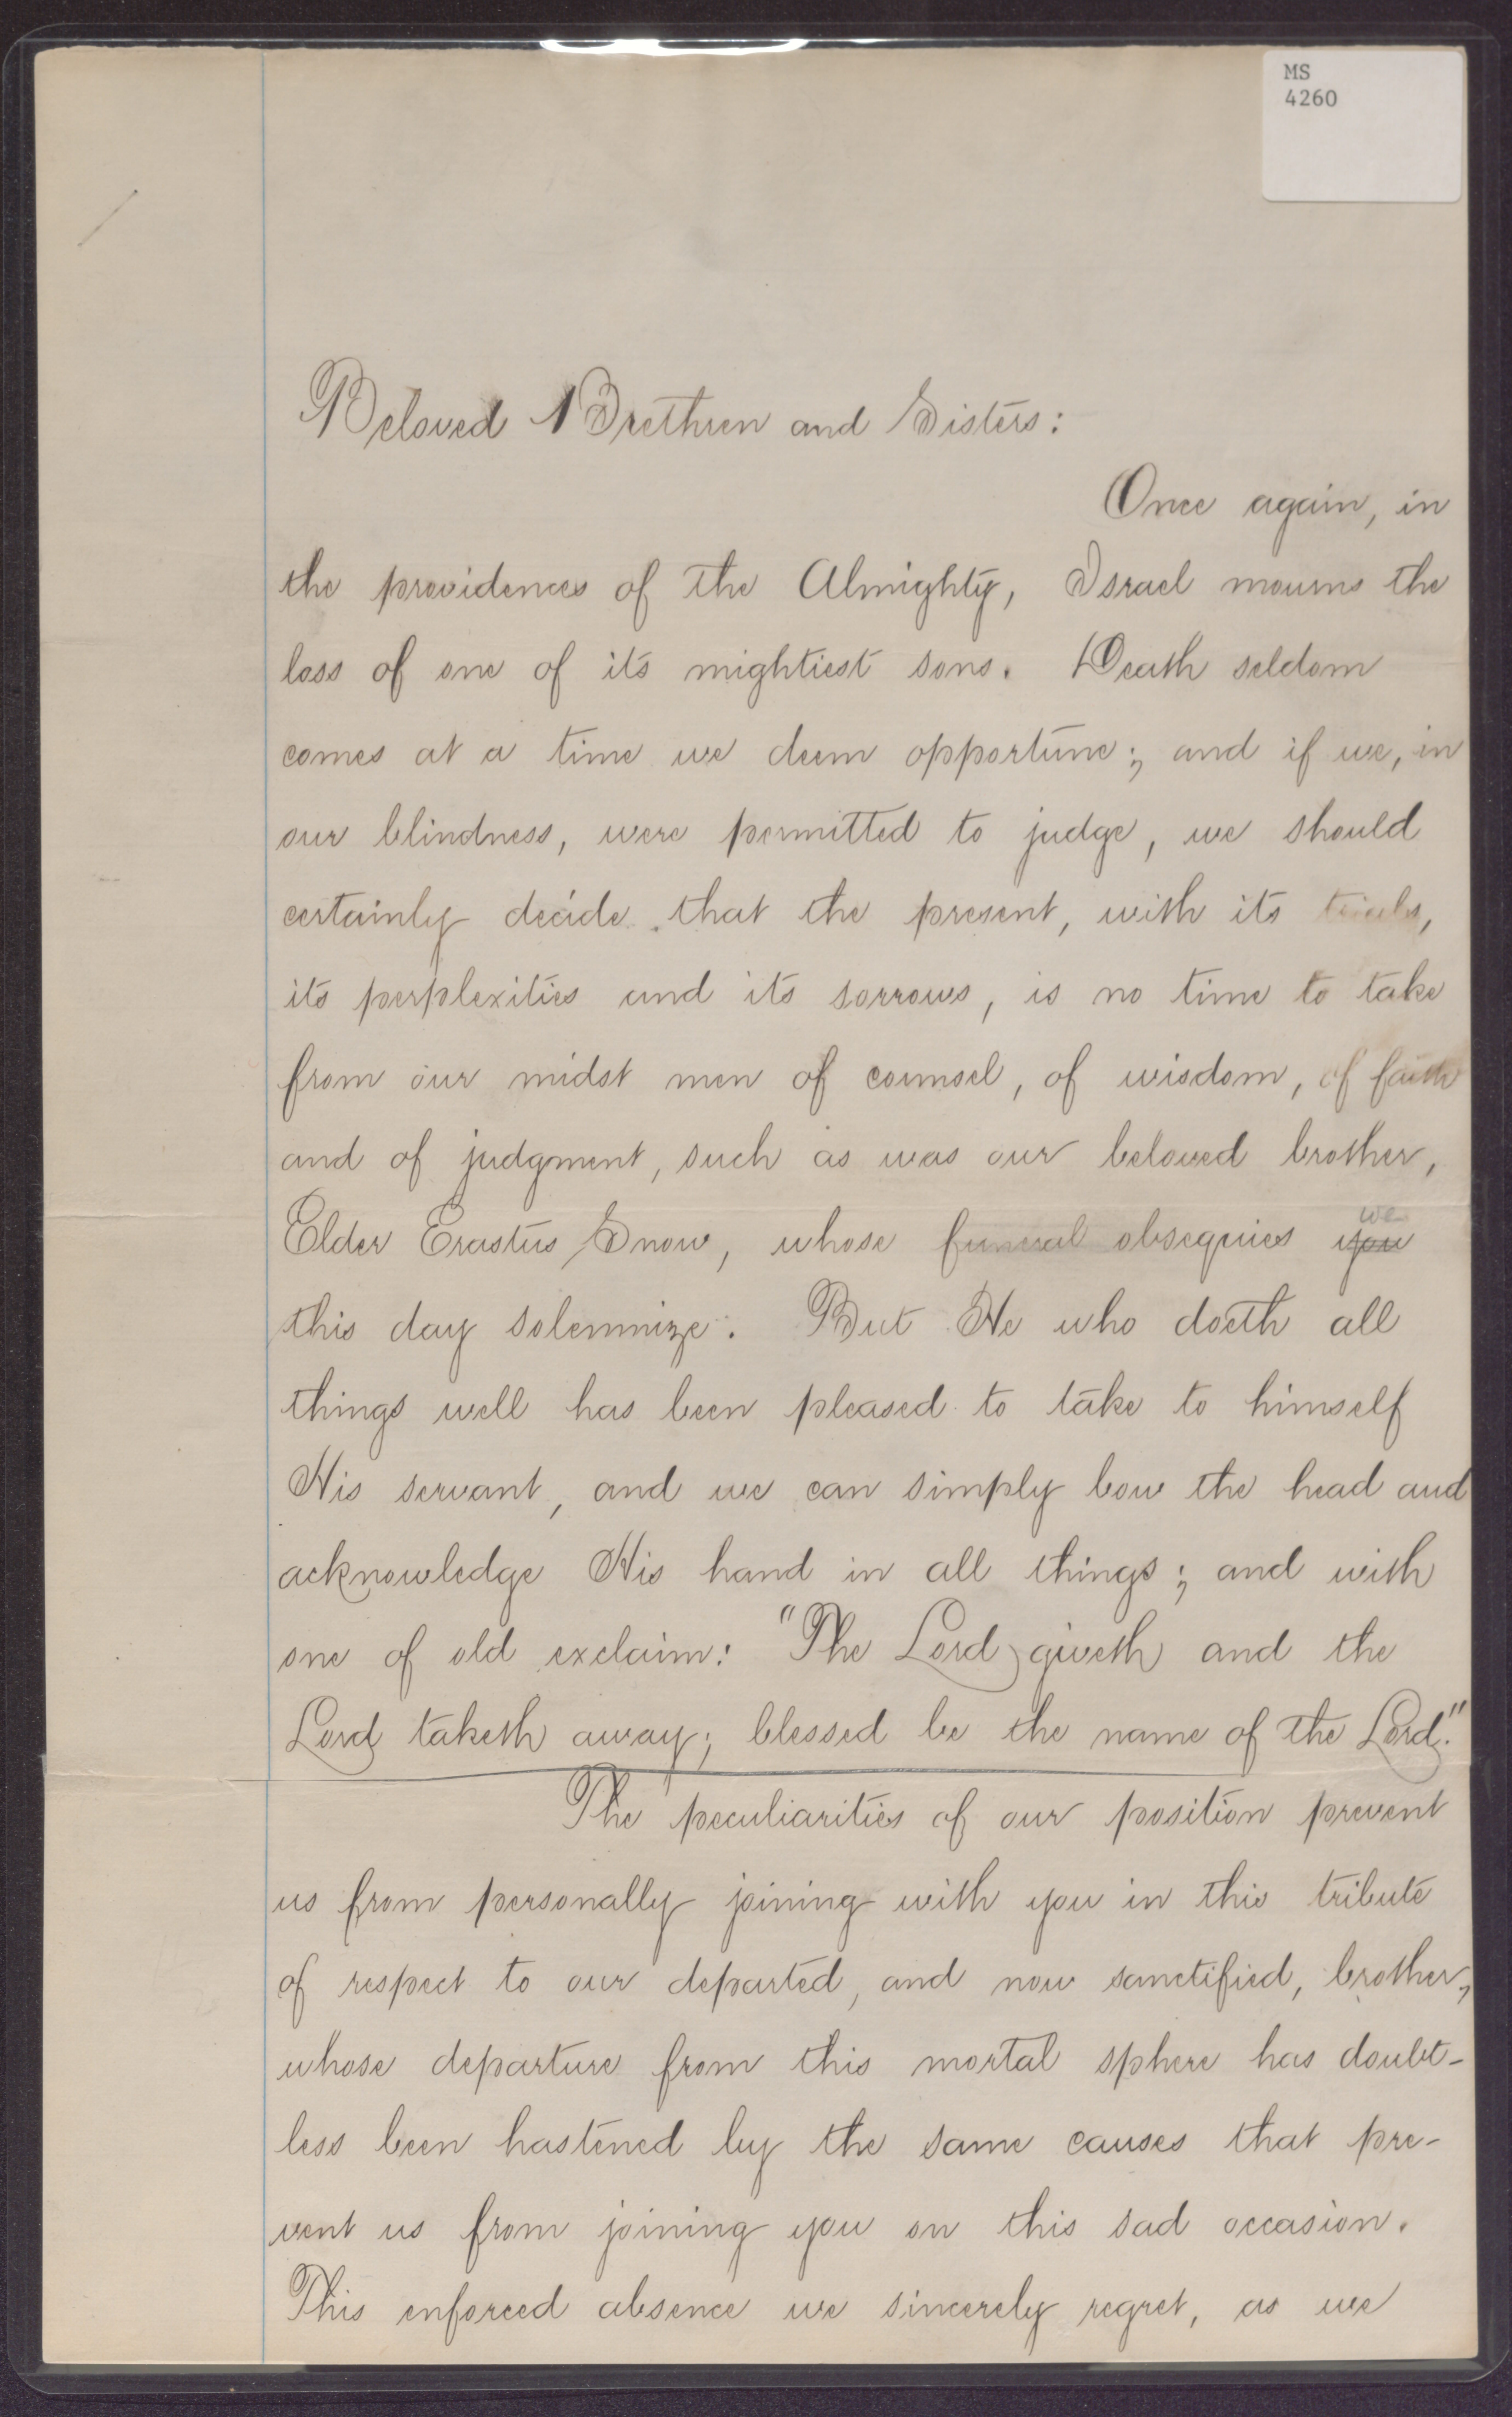 MS
4260
Beloved Brethren and Sisters:
Once again, in
the providences of the Almighty, Israel mourns the
loss of one of its mightiest sons. Death seldom
comes at a time we deem opportune; and if we, in
our blindness, were permitted to judge, we should
certainly decide that the present, with its trials,
its perplexities and its sorrows, is no time to take
from our midst men of counsel, of wisdom, of faith
and of judgment, such as was our beloved brother,
Elder Erastus Snow, whose funeral obsequies you we
this day solemnize. But He who doeth all
things well has been pleased to take to himself
His servant, and we can simply bow the head and
acknowledge His hand in all things; and with
one of old exclaim: "The Lord giveth and the
Lord taketh away; blessed be the name of the Lord."
The peculiarities of our position prevent
us from personally joining with you in this tribute
of respect to our departed, and now sanctified, brother,
whose departure from this mortal sphere has doubt-
less been hastened by the same causes that pre-
vent us from joining you on this sad occasion.
This enforced absence we sincerely regret, as we